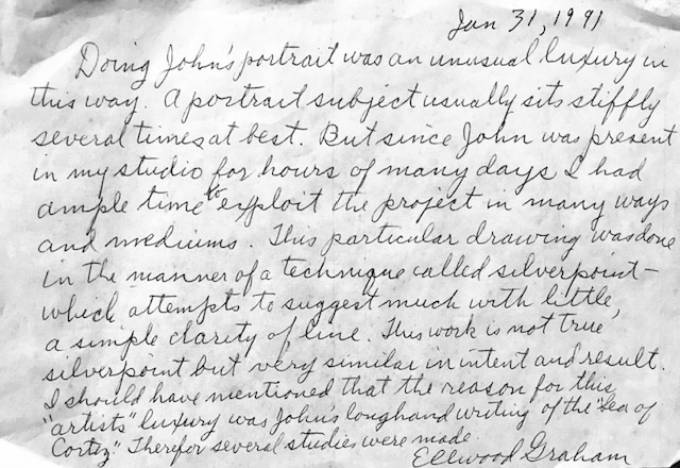 Jan 31, 1991
Doing John's portrait was an unusual luxury in
this way. A portrait subject usually sits stiffly
several times at best. But since John was present
in my studio for hours of many days I had
ample time to exploit the project in many ways
and mediums. This particular drawing was done
in the manner of a technique called silverpoint -
which attempts to suggest much with little,
a simple clarity of line. This work is not true
silverpoint but very similar in intent and result.
I should have mentioned that the reason for this
"artists" luxury was John's longhand writing of the "Sea of
Cortez." Therefor several studies were made.
Ellwood Graham